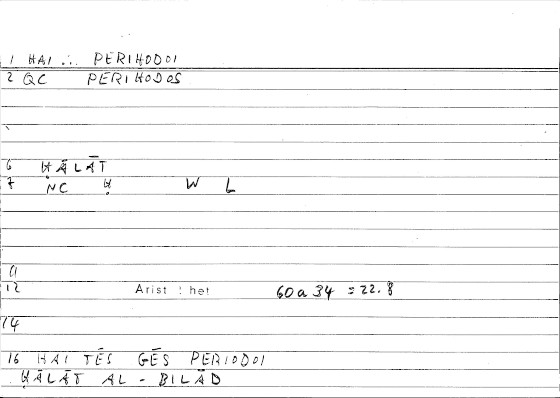 1 HAI ∴ PERIHODOI
2 QC PERIHODOS
6 ḤĀLĀT
7 NC Ḥ W L
9
12 Arist : het 60 a 34 = 22.8
14
16 HAI TĒS GĒS PERIODOI
ḤĀLĀT AL - BILĀD